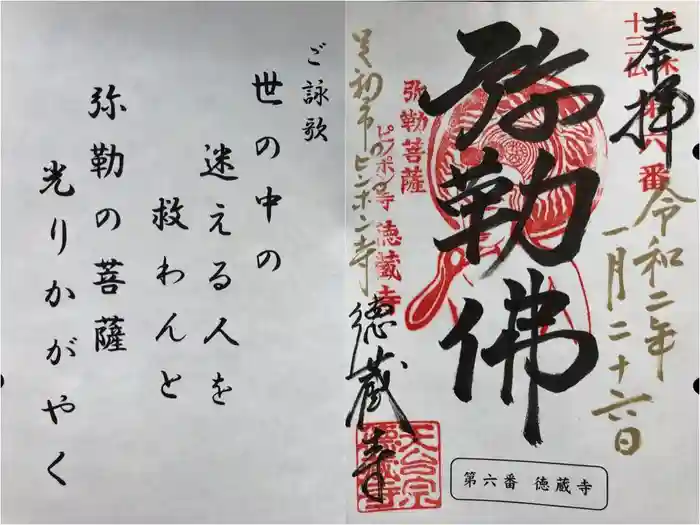 ご詠歌
世の中の
迷える人を
救わんと
弥勒の菩薩
光りかがやく
奉拝
十三仏
第六番
令和二年
一月二十六日
弥勒佛
弥勒菩薩
ピンポン寺 徳蔵寺
足利市のピンポン寺
徳蔵寺
天台宗
徳蔵寺
第六番 徳蔵寺